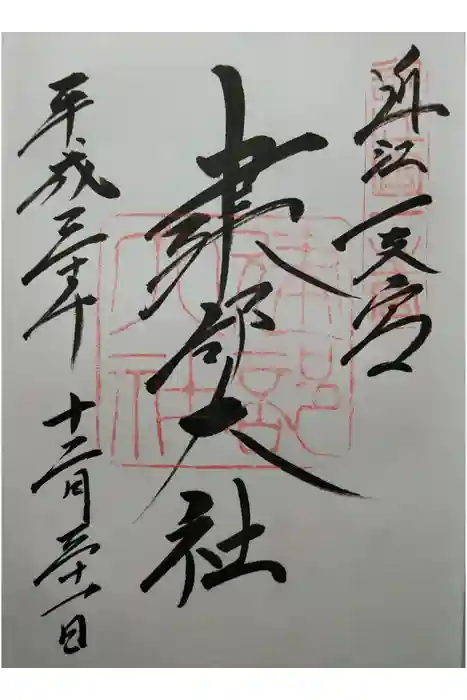 近江一之宮
建部大社
平成三十年
十二月三十一日
建部大社